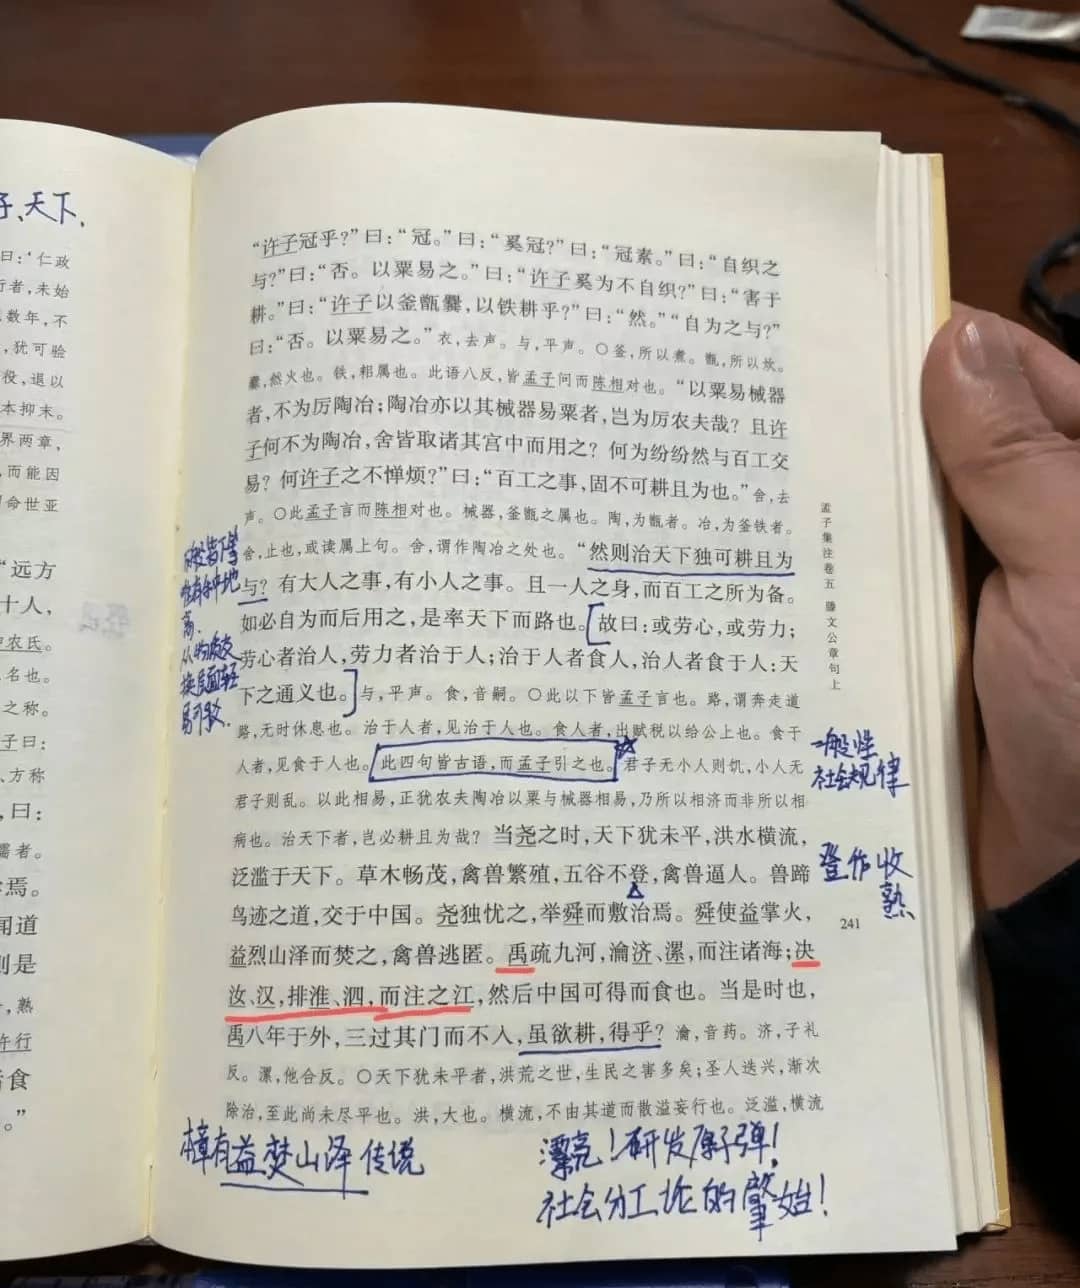 子、天下、
曰：‘仁政
行者，未始
数年，不
，犹可验
役，退以
本抑末。
界两章，
，而能因
命世亚
“远方
十人，
神农氏。
名也。
之称。
子曰：
、方称
，曰：
焉。
闻道
则是
，熟
许行
食
。”
“许子冠乎？”曰：“冠。”曰：“奚冠？”曰：“冠素。”曰：“自织之
与？”曰：“否。以粟易之。”曰：“许子奚为不自织？”曰：“害于
耕。”曰：“许子以釜甑爨，以铁耕乎？”曰：“然。”“自为之与？”
曰：“否。以粟易之。”衣，去声。与，平声。○釜，所以煮。甑，所以炊。
爨，然火也。铁，耜属也。此语八反，皆孟子问而陈相对也。“以粟易械器
者，不为厉陶冶；陶冶亦以其械器易粟者，岂为厉农夫哉？且许
子何不为陶冶，舍皆取诸其宫中而用之？何为纷纷然与百工交
易？何许子之不惮烦？”曰：“百工之事，固不可耕且为也。”舍，去
声。○此孟子言而陈相对也。械器，釜甑之属也。陶，为甑者。冶，为釜铁者。
舍，止也，或读属上句。舍，谓作陶冶之处也。“然则治天下独可耕且为
与？有大人之事，有小人之事。且一人之身，而百工之所为备。
如必自为而后用之，是率天下而路也。故曰：或劳心，或劳力；
劳心者治人，劳力者治于人；治于人者食人，治人者食于人：天
下之通义也。与，平声。食，音嗣。○此以下皆孟子言也。路，谓奔走道
路，无时休息也。治于人者，见治于人也。食人者，出赋税以给公上也。食于
人者，见食于人也。此四句皆古语，而孟子引之也。君子无小人则饥，小人无
君子则乱。以此相易，正犹农夫陶冶以粟与械器相易，乃所以相济而非所以相
病也。治天下者，岂必耕且为哉？当尧之时，天下犹未平，洪水横流，
泛滥于天下。草木畅茂，禽兽繁殖，五谷不登，禽兽逼人。兽蹄
鸟迹之道，交于中国。尧独忧之，举舜而敷治焉。舜使益掌火，
益烈山泽而焚之，禽兽逃匿。禹疏九河，瀹济、漯，而注诸海；决
汝、汉，排淮、泗，而注之江，然后中国可得而食也。当是时也，
禹八年于外，三过其门而不入，虽欲耕，得乎？瀹，音药。济，子礼
反。漯，他合反。○天下犹未平者，洪荒之世，生民之害多矣；圣人迭兴，渐次
除治，至此尚未尽平也。洪，大也。横流，不由其道而散溢妄行也。泛滥，横流
皆下
高.
从物质交
换层面轻
易可驳.
孟子集注卷五 滕文公章句上
一般性
社会规律
登作收
熟
241
有益焚山泽传说
漂亮！研发原子弹！
社会分工论的肇始！